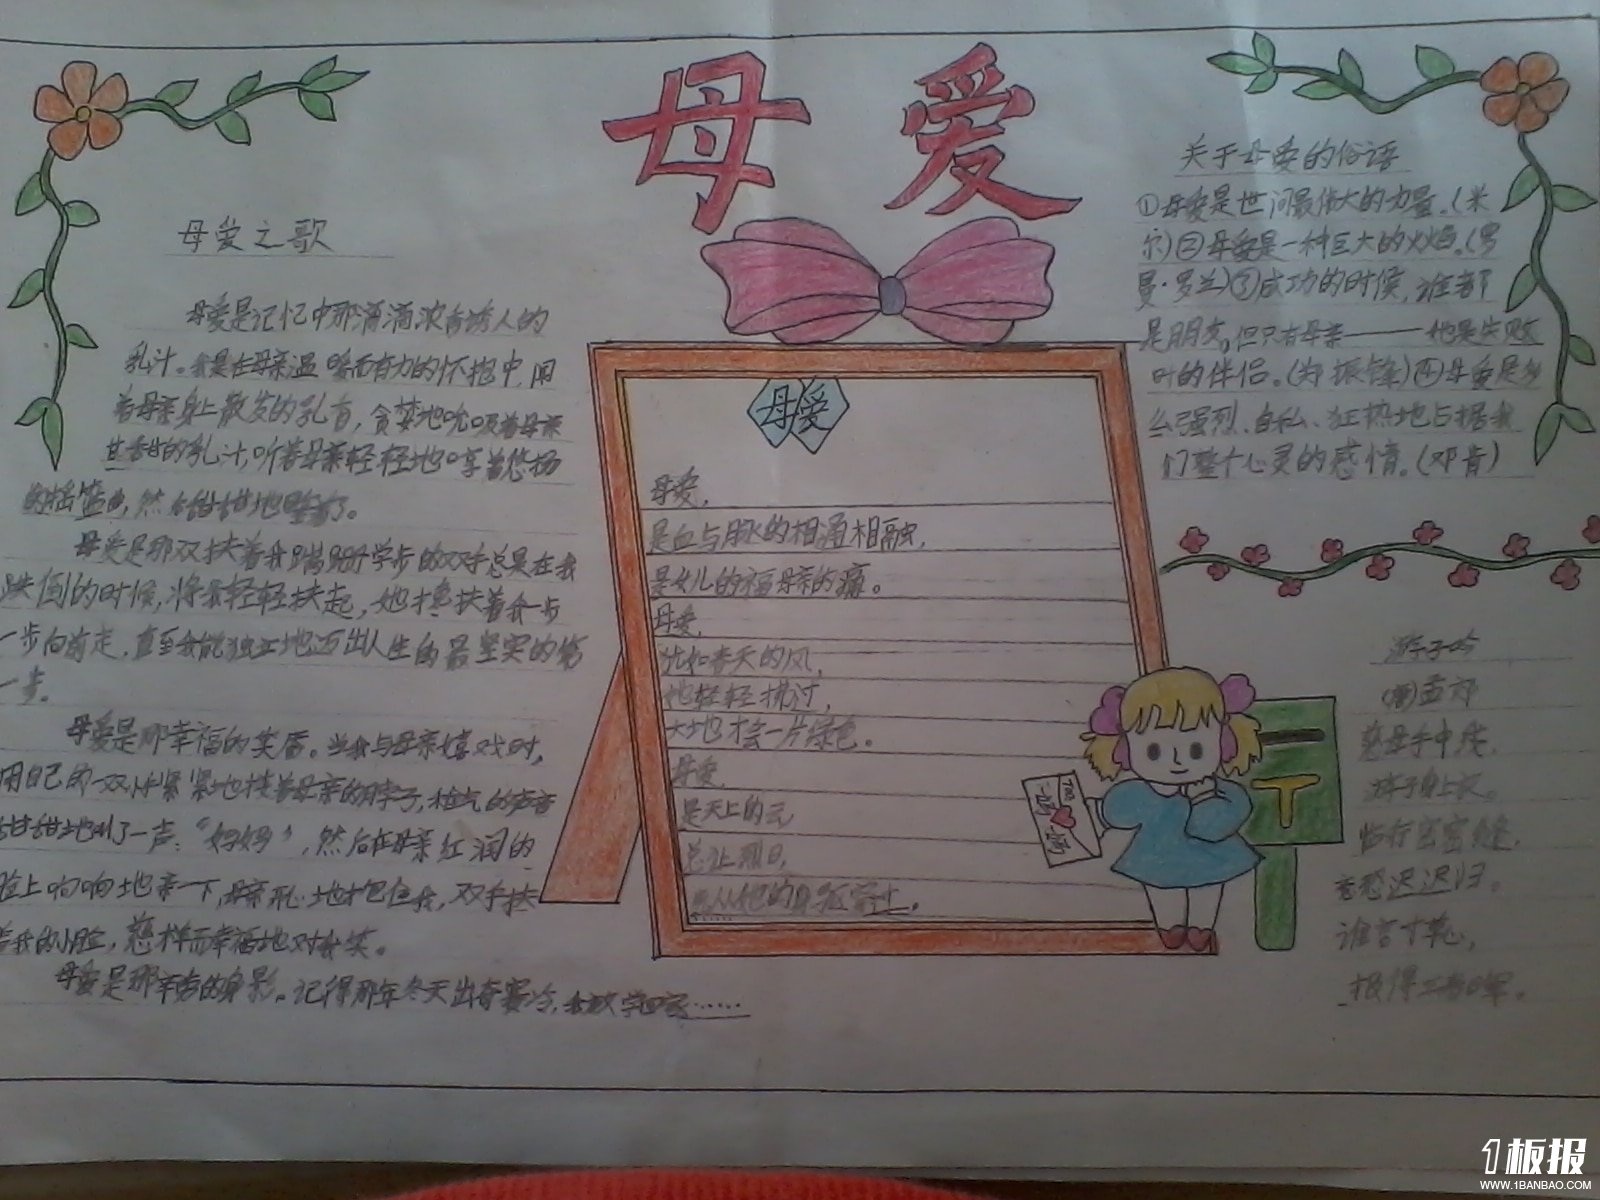 母爱
母爱之歌
母爱是记忆中那滴滴浓香诱人的
乳汁。我是在母亲温暖而有力的怀抱中,闻
着母亲身上散发的乳香,贪婪地吮吸着母亲
甘香的乳汁,听着母亲轻轻地哼着悠扬
的摇篮曲,然后甜甜地睡着了。
母爱是那双扶着我蹒跚学步的双手总是在我
跌倒的时候,将我轻轻扶起,她搀扶着我一步
一步向前走,直至我能独立地迈出人生的最坚实的第
一步。
母爱是那幸福的笑唇。当我与母亲嬉戏时,
用自己的一双小手紧紧地搂着母亲的脖子,稚气的声音
甜甜地叫了一声:“妈妈”,然后在母亲红润的
脸上响响地亲一下,母亲开心地抱住我,双手扶
着我的小脸,慈祥而幸福地对我笑。
母爱是那辛劳的身影。记得那年冬天出奇寒冷,我放学回家……
母爱
母爱,
是血与脉的相通相融,
是女儿的福母亲的痛。
母爱,
犹如春天的风,
她轻轻拂过,
大地才会一片绿色。
母爱,
是天上的云
总让烈日,
先从他的身躯穿过。
关于母爱的俗语
①母爱是世间最伟大的力量。(米
尔)②母爱是一种巨大的火焰。(罗
曼·罗兰)③成功的时候,谁都
是朋友。但只有母亲——她是失败
时的伴侣。(郑振铎)④母爱是多
么强烈、自私、狂热地占据我
们整个心灵的感情。(邓肯)
游子吟
(唐)孟郊
慈母手中线,
游子身上衣。
临行密密缝,
意恐迟迟归。
谁言寸草心,
报得三春晖。
1板报
WWW.1BANBAO.COM